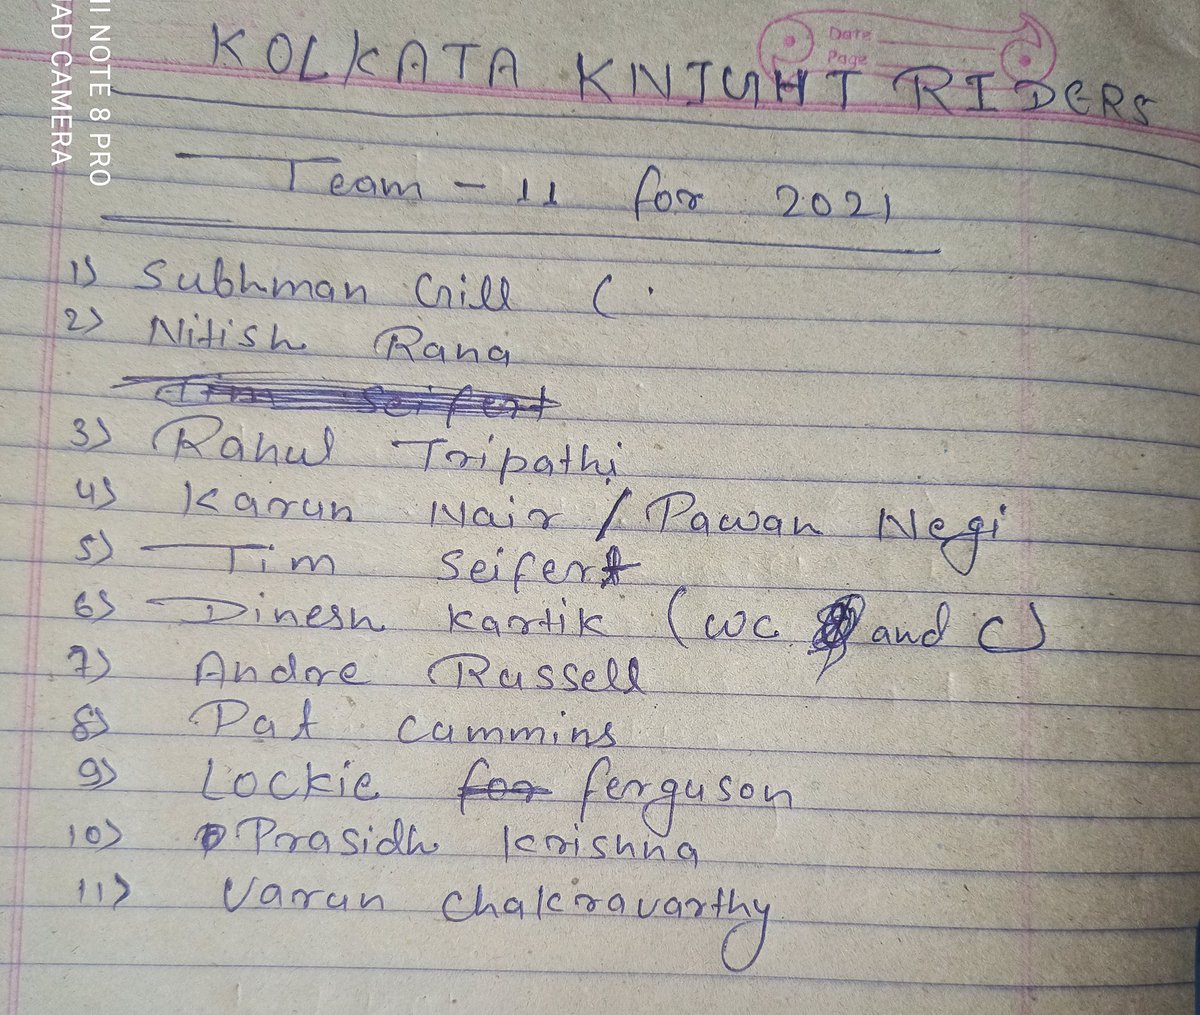 Date
Page
KOLKATA KNIGHT RIDERS
Team - 11 for 2021
1) Subhman Gill (.
2) Nitish Rana
Tim Seifert
3) Rahul Tripathi
4) Karun Nair / Pawan Negi
5) Tim Seifert
6) Dinesh Kartik (wc and C)
7) Andre Russell
8) Pat cammins
9) Lockie for ferguson
10) Prasidh Krishna
11) Varun Chakravarthy
II NOTE 8 PRO
AD CAMERA